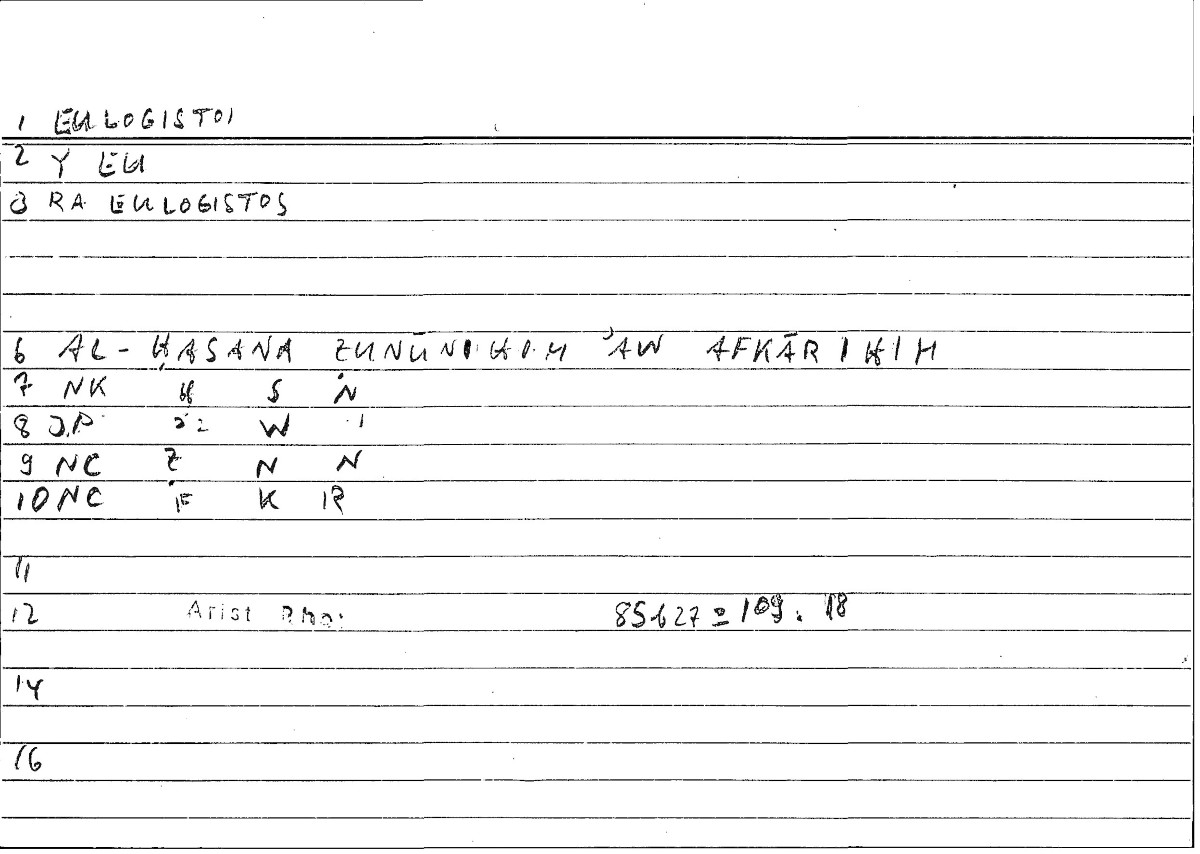 1 EULOGISTOI
2 Y EU
3 RA EULOGISTOS
6 AL-ḤASANA ẒUNŪNIHIM ʾAW AFKĀRIHIM
7 NK Ḥ S N
8 J.P ʾ2 W 1
9 NC Ẓ N N
10 NC F K R
11
12 Arist Rho: 85b27 = 109. 18
14
16